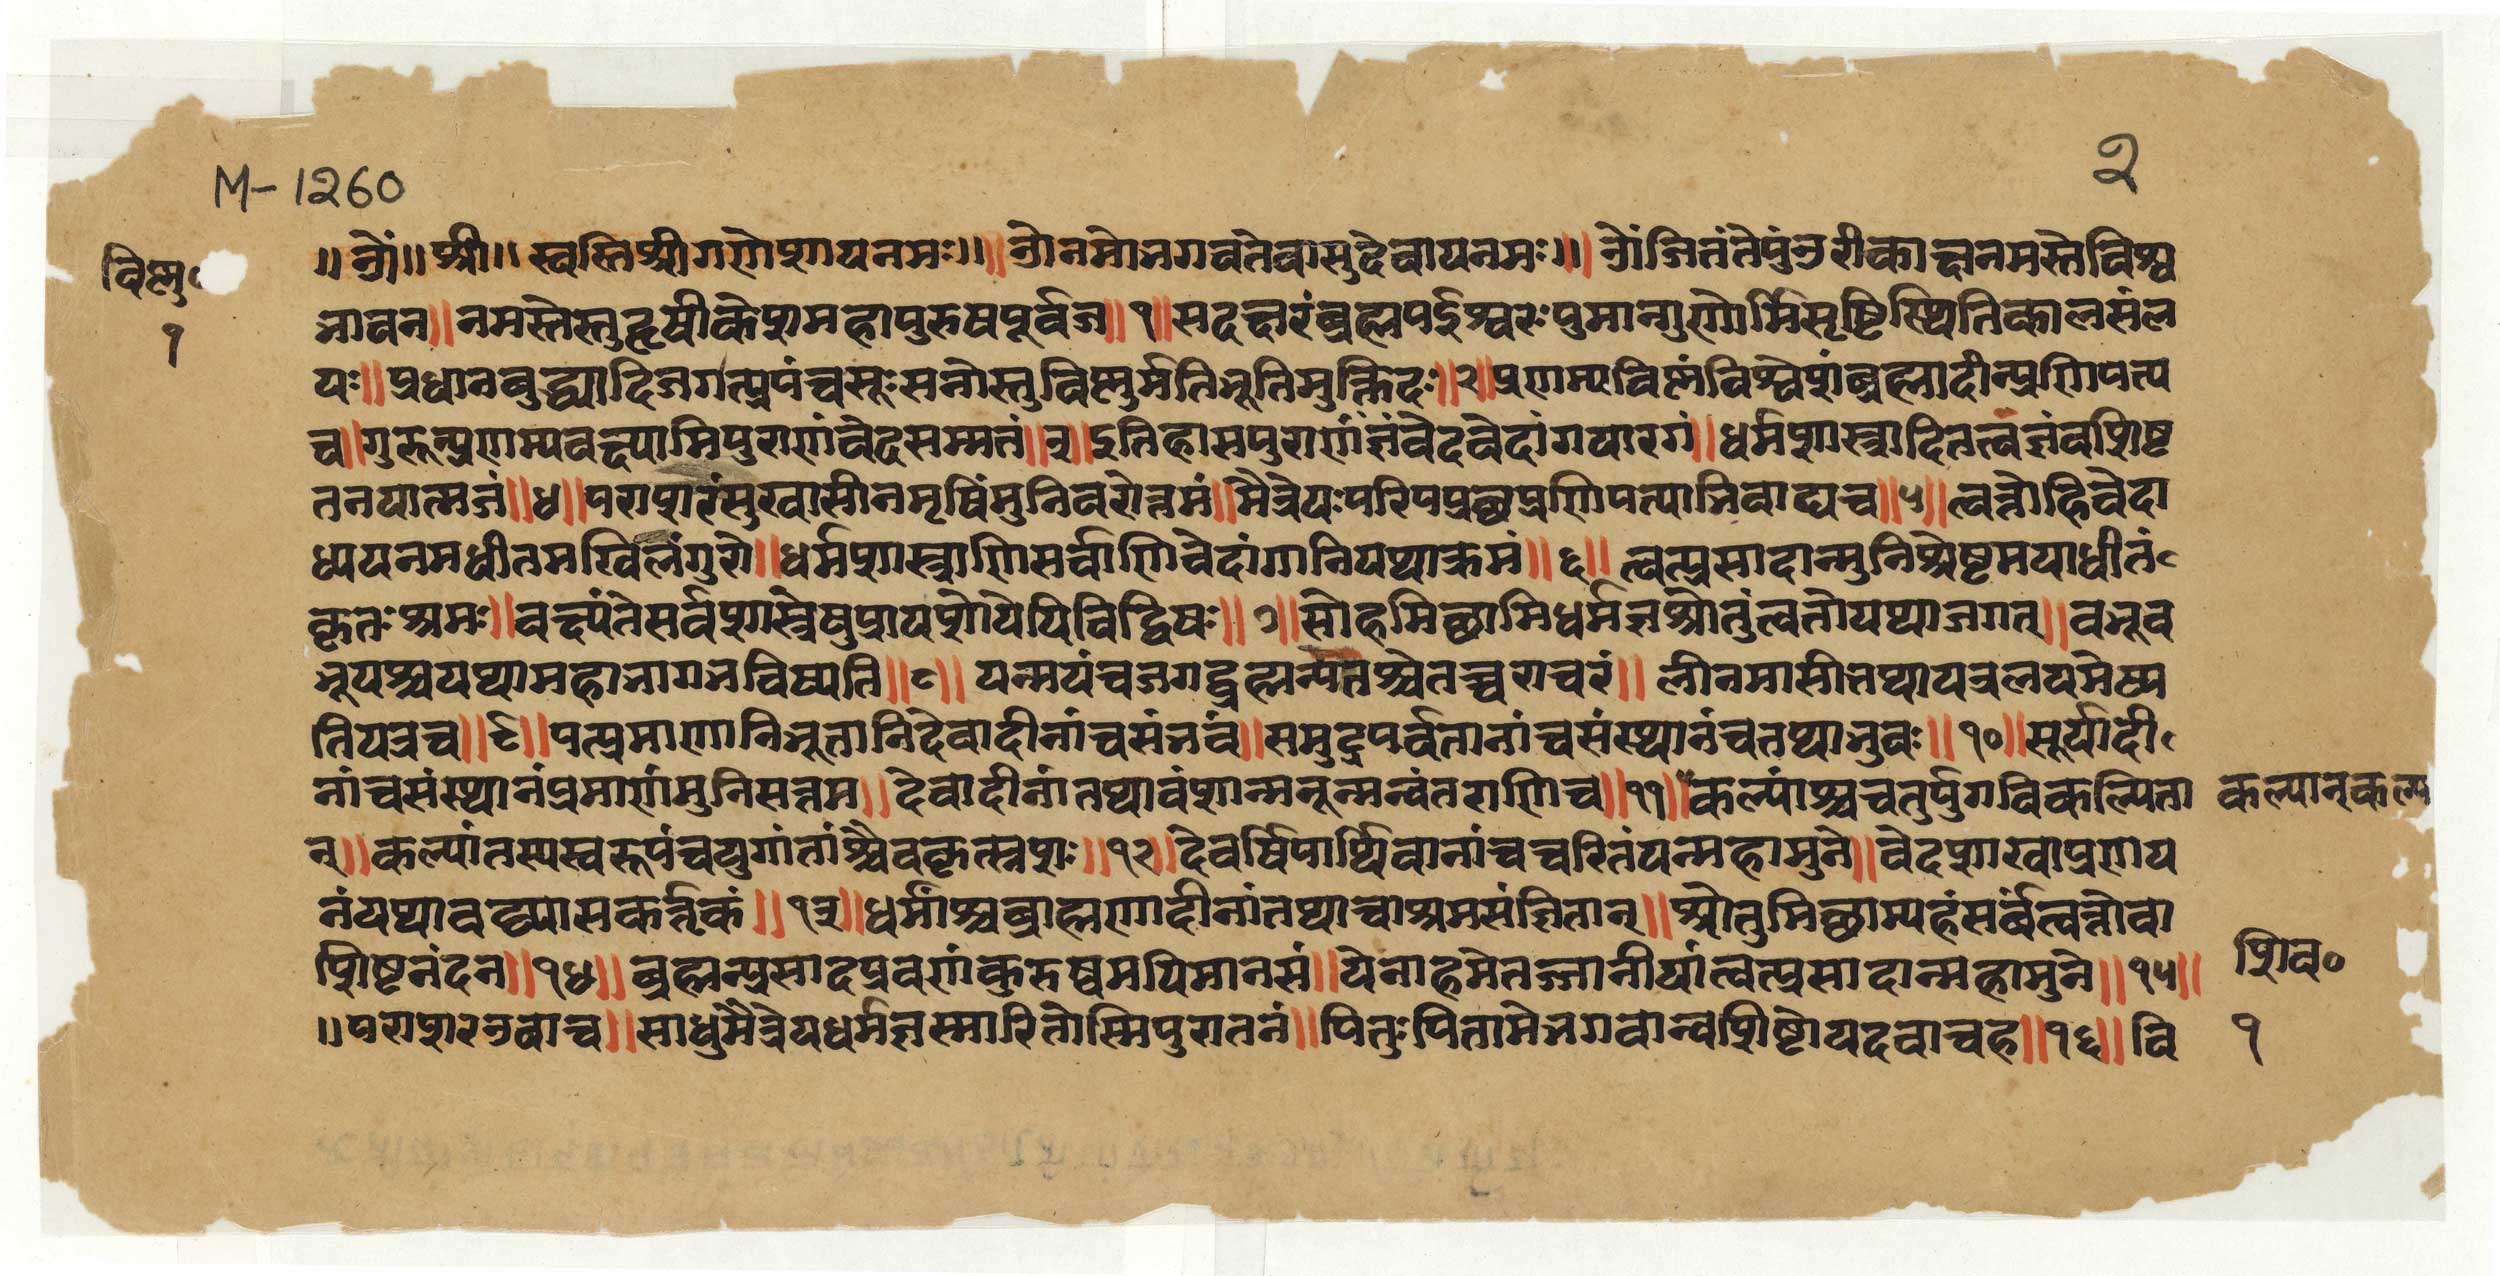 M-1260
२
विष्णु
१
॥ ओं ॥ श्री ॥ स्वस्तिश्रीगणेशायनमः ॥ ओंनमोभगवतेवासुदेवायनमः ॥ ओंजितंतेपुंडरीकाक्षनमस्तेविश्व
भावन ॥ नमस्तेस्तुहृषीकेशमहापुरुषपूर्वज ॥ १ ॥ सदक्षरंब्रह्मपईश्वरः पुमान्गुणोर्मिसृष्टिस्थितिकालसंल
यः ॥ प्रधानबुद्ध्यादिजगत्प्रपंचसूः सनोस्तुविष्णुर्मतिभूतिमुक्तिदः ॥ २ ॥ प्रणम्यविष्णंविश्वेशंब्रह्मादीन्प्रणिपत्य
च ॥ गुरून्प्रणम्यवक्ष्यामिपुराणंवेदसम्मतं ॥ ३ ॥ इतिहासपुराणंज्ञंवेदवेदांगपारगं ॥ धर्मशास्त्रादितत्त्वज्ञंवशिष्ट
तनयात्मजं ॥ ४ ॥ पराशरंसुखासीनमृषिंमुनिवरोत्तमं ॥ मैत्रेयः परिपप्रछप्रणिपत्याभिवाद्यच ॥ ५ ॥ त्वत्तोहिवेदा
ध्ययनमधीतमखिलंगुरो ॥ धर्मशास्त्राणिसर्वाणिवेदांगानियथाक्रमं ॥ ६ ॥ त्वत्प्रसादान्मुनिश्रेष्टमयाधीतं
कृतः श्रमः ॥ वक्ष्यंतेसर्वशास्त्रेषुप्रायशोयेपिविद्विषः ॥ ७ ॥ सोहमिछामिधर्मज्ञश्रोतुंत्वत्तोयथाजगत् ॥ वभूव
भूयश्चयथामहाभागभविष्यति ॥ ८ ॥ यन्मयंचजगद्ब्रह्मन्यतश्चेतच्चराचरं ॥ लीनमासीत्तथायत्रलयमेष्य
तियत्रच ॥ ९ ॥ यत्प्रमाणानिभूतानिदेवादीनांचसंभवं ॥ समुद्रपर्वतानांचसंस्थानंचतथाभुवः ॥ १० ॥ सूर्यादी
नांचसंस्थानंप्रमाणंमुनिसत्तम ॥ देवादीनांतथावंशान्मनून्मन्वंतराणिच ॥ ११ ॥ कल्पांश्चचतुर्युगविकल्पिता
कल्पान्कल्प
न् ॥ कल्पांतस्यस्वरूपंचयुगांतांश्चैवकृत्स्नशः ॥ १२ ॥ देवर्षिपार्थिवानांचचरितंयन्महामुने ॥ वेदशाखाप्रणय
नंयथावद्व्यासकर्तृकं ॥ १३ ॥ धर्मांश्चब्राह्मणादीनांतथाचाश्रमसंज्ञितान् ॥ श्रोतुमिछाम्यहंसर्वंत्वत्तोवा
शिष्टनंदन ॥ १४ ॥ ब्रह्मन्प्रसादप्रवणंकुरुष्वमयिमानसं ॥ येनाहमेतज्जानीयांत्वत्प्रसादान्महामुने ॥ १५ ॥
॥ पराशरउवाच ॥ साधुमैत्रेयधर्मज्ञस्मारितोस्मिपुरातनं ॥ पितुः पितामेभगवान्वशिष्टोयदवाचह ॥ १६ ॥ वि
शिव०
१